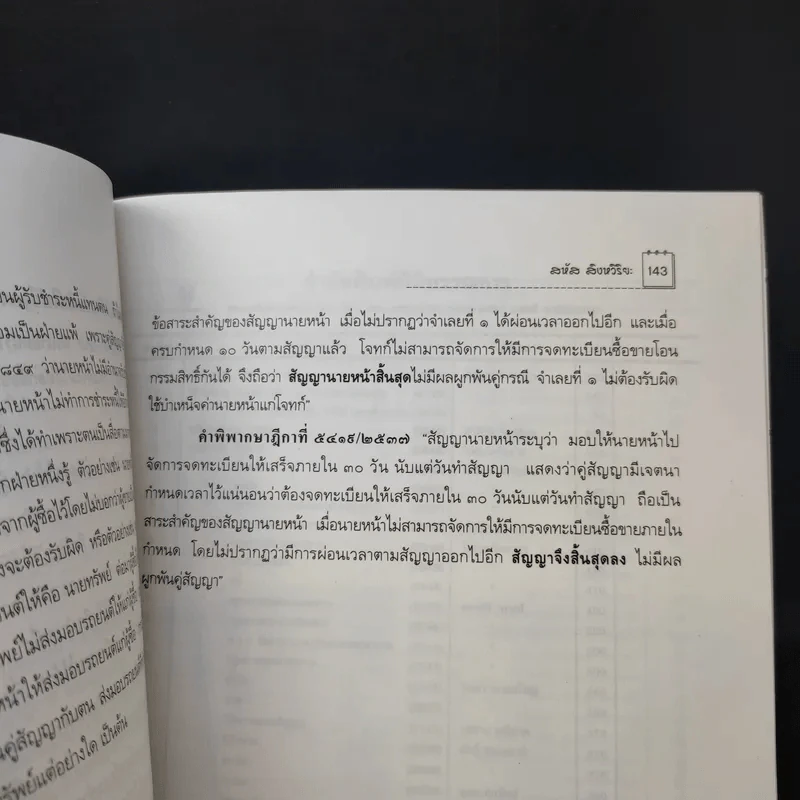 อนผู้รับชำระหนี้แทนตน
อมเป็นฝ่ายแพ้ เพราะคู่สัญญา
๘๔๙ ว่านายหน้าไม่มีอำนาจ
นายหน้าไม่ทำการชำระหนี้ให้
ซึ่งได้ทำเพราะตนเป็นสื่อ
กฝ่ายหนึ่งรู้ ตัวอย่างเช่น
จากผู้ซื้อไว้โดยไม่บอกว่า
งจะต้องรับผิด หรือตัวอย่าง
ยนต์ให้คือ นายทรัพย์ ต่อมา
พย์ไม่ส่งมอบรถยนต์ให้แก่ผู้ซื้อ
หน้าให้ส่งมอบรถยนต์แก่ผู้ซื้อ
นคู่สัญญากับตน ส่งมอบรถยนต์
รัพย์แต่อย่างใด เป็นต้น
สหัส สิงหวิริยะ 143
ข้อสาระสำคัญของสัญญานายหน้า เมื่อไม่ปรากฏว่าจำเลยที่ ๑ ได้ผ่อนเวลาออกไปอีก และเมื่อ
ครบกำหนด ๑๐ วันตามสัญญาแล้ว โจทก์ไม่สามารถจัดการให้มีการจดทะเบียนซื้อขายโอน
กรรมสิทธิ์กันได้ จึงถือว่า สัญญานายหน้าสิ้นสุดไม่มีผลผูกพันคู่กรณี จำเลยที่ ๑ ไม่ต้องรับผิด
ใช้บำเหน็จค่านายหน้าแก่โจทก์"
คำพิพากษาฎีกาที่ ๕๔๑๙/๒๕๓๗ "สัญญานายหน้าระบุว่า มอบให้นายหน้าไป
จัดการจดทะเบียนให้เสร็จภายใน ๓๐ วัน นับแต่วันทำสัญญา แสดงว่าคู่สัญญามีเจตนา
กำหนดเวลาไว้แน่นอนว่าต้องจดทะเบียนให้เสร็จภายใน ๓๐ วันนับแต่วันทำสัญญา ถือเป็น
สาระสำคัญของสัญญานายหน้า เมื่อนายหน้าไม่สามารถจัดการให้มีการจดทะเบียนซื้อขายภายใน
กำหนด โดยไม่ปรากฏว่ามีการผ่อนเวลาตามสัญญาออกไปอีก สัญญาจึงสิ้นสุดลง ไม่มีผล
ผูกพันคู่สัญญา"